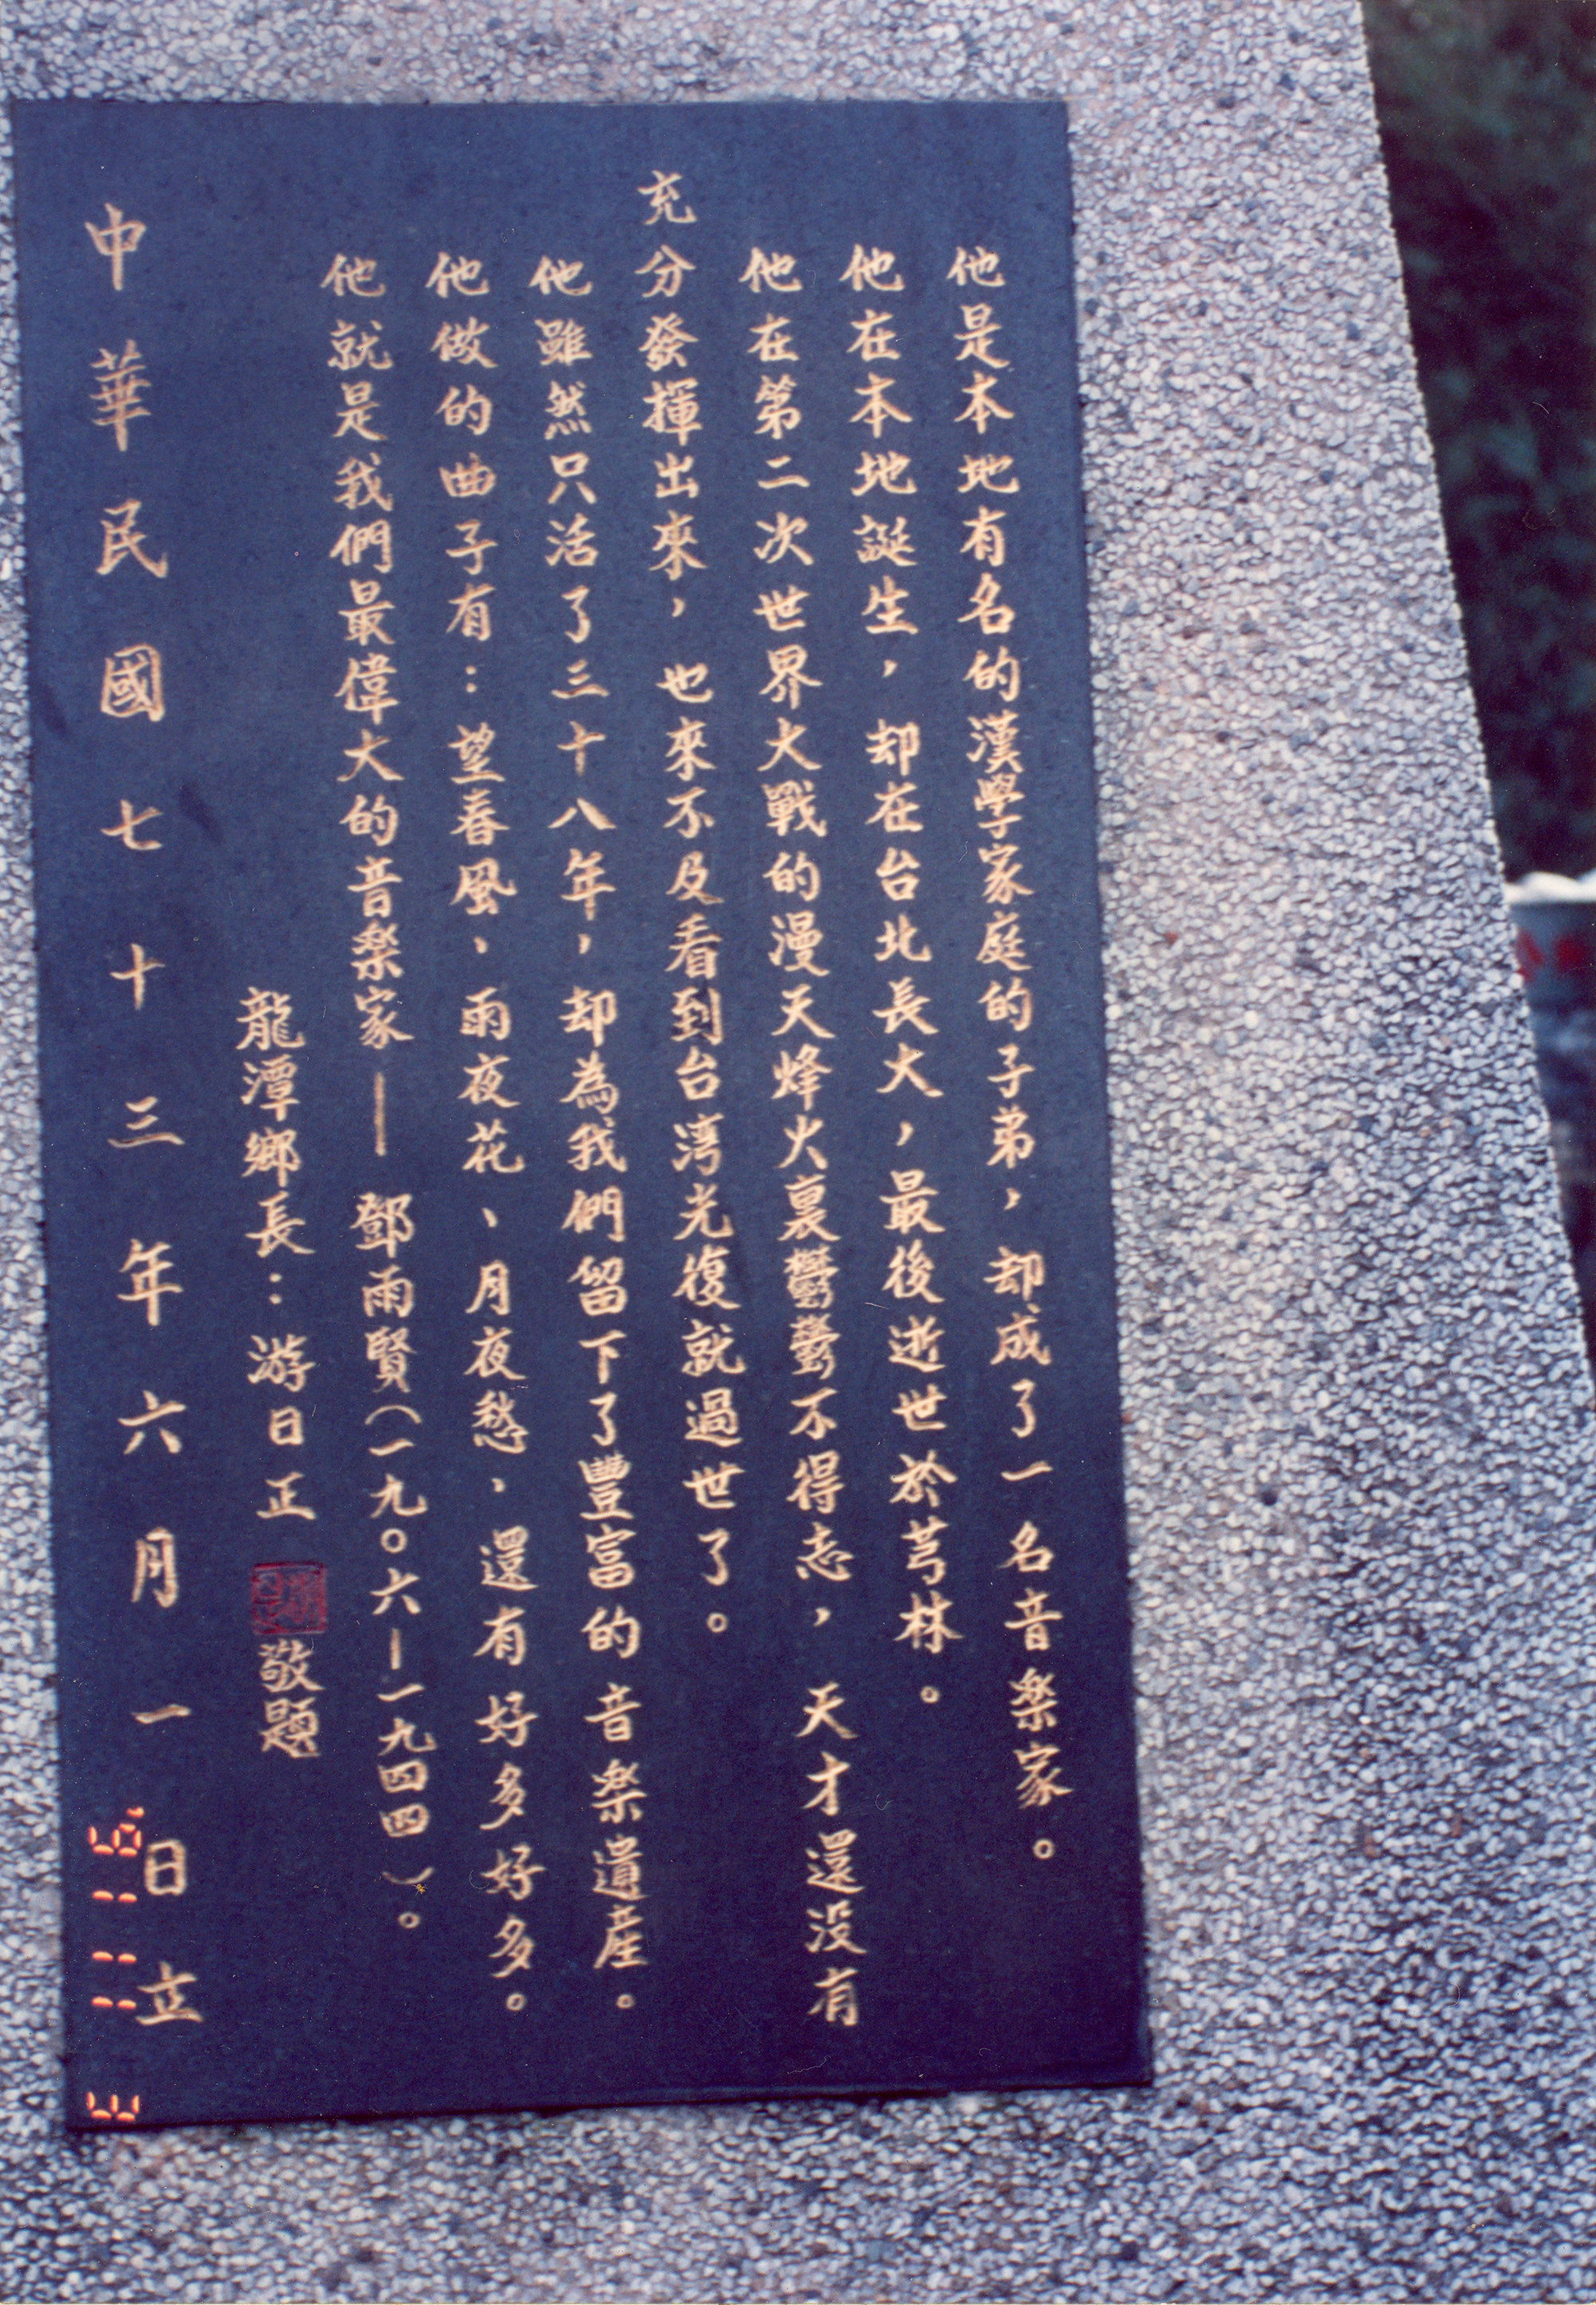 他是本地有名的漢學家庭的子弟，却成了一名音楽家。
他在本地誕生，却在台北長大，最後逝世於芎林。
他在第二次世界大戰的漫天烽火裏鬱鬱不得志，天才還没有
充分發揮出來，也來不及看到台湾光復就過世了。
他雖然只活了三十八年，却為我們留下了豐富的音楽遺産。
他做的曲子有：望春風、雨夜花、月夜愁、還有好多好多。
他就是我們最偉大的音楽家—鄧雨賢（一九〇六—一九四四）。
龍潭鄉長：游日正 敬題
中華民國七十三年六月一日立